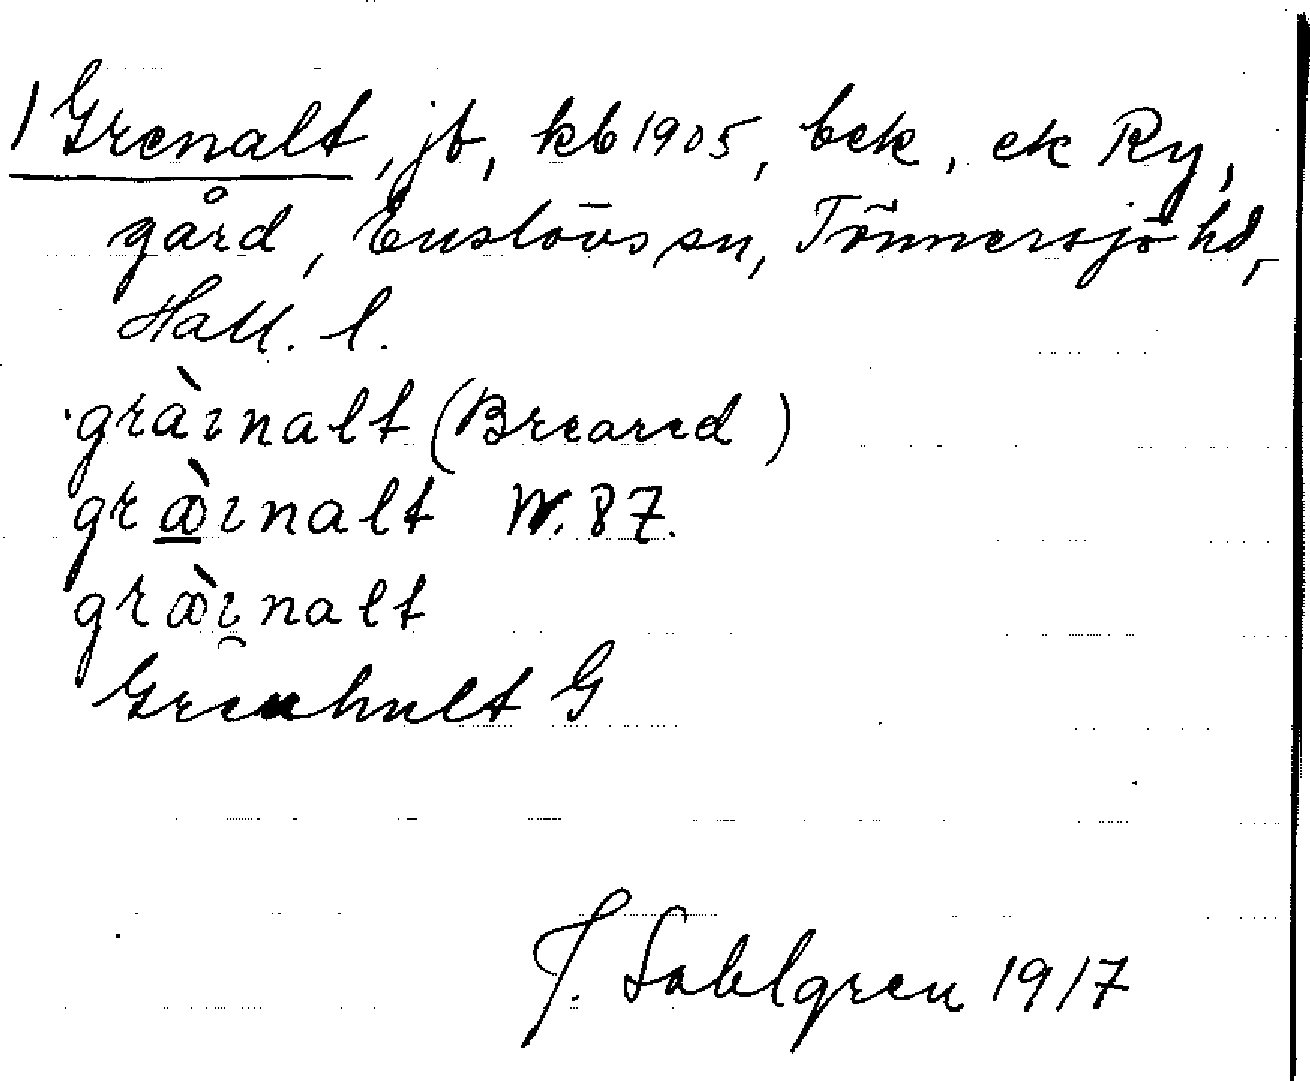 1 Grenalt, jb, kb 1905, bek, ek Ry,
gård, Enslövs sn, Tönnersjö hd,
Hall. l.
gràınalt (Breared)
græ̀ınalt W. 87.
græ̀ı̯nalt
Grenhult G
J. Sahlgren 1917